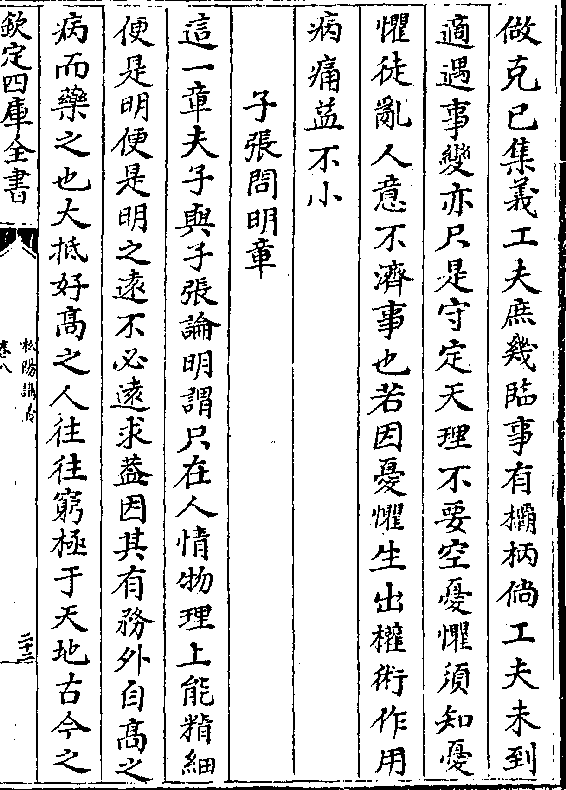 做克已集義工夫庶幾臨事有欛柄倘工夫未到
適遇事變亦只是守定天理不要空憂懼須知憂
懼徒亂人意不濟事也若因憂懼生出權術作用
病痛益不小
子張問明章
這一章夫子與子張論明謂只在人情物理上能精細
便是明便是明之遠不必遠求葢因其有務外自高之
病而藥之也大抵好高之人往往窮極于天地古今之
欽定四庫全書
松陽講義
卷八
二十三